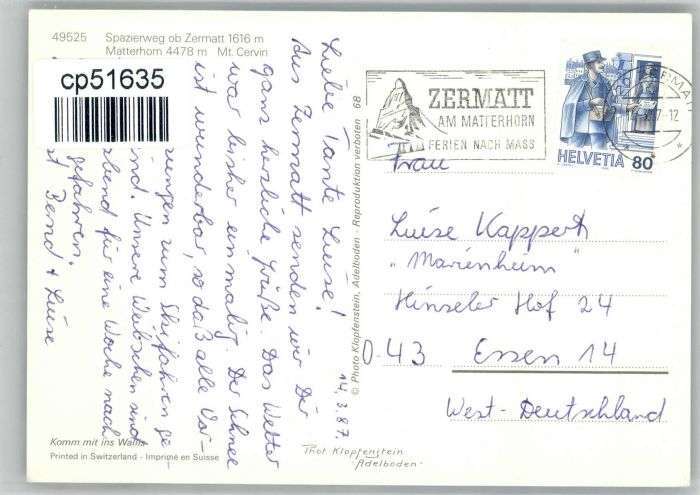 49525 Spazierweg ob Zermatt 1616 m
Matterhorn 4478 m Mt. Cervin
cp51635
14.3.87.
Liebe Tante Luise!
Aus Zermatt senden wir Dir
ganz herzliche Grüße. Das Wetter
war bisher einmalig. Der Schnee
ist wunderbar, so daß alle Vor-
zungen zum Skifahren ge-
ind. Unsere Weibschen sind
bend für eine Woche nach
gefahren.
st Bernd + Luise
Komm mit ins Wallis
Printed in Switzerland - Imprimé en Suisse
© Photo Klopfenstein, Adelboden - Reproduktion verboten 68
Phot Klopfenstein
Adelboden
ZERMATT
AM MATTERHORN
FERIEN NACH MASS
HELVETIA 80
Frau
Luise Kappert
„Marienheim"
Hinseler Hof 24
D-43 Essen 14
West-Deutschland